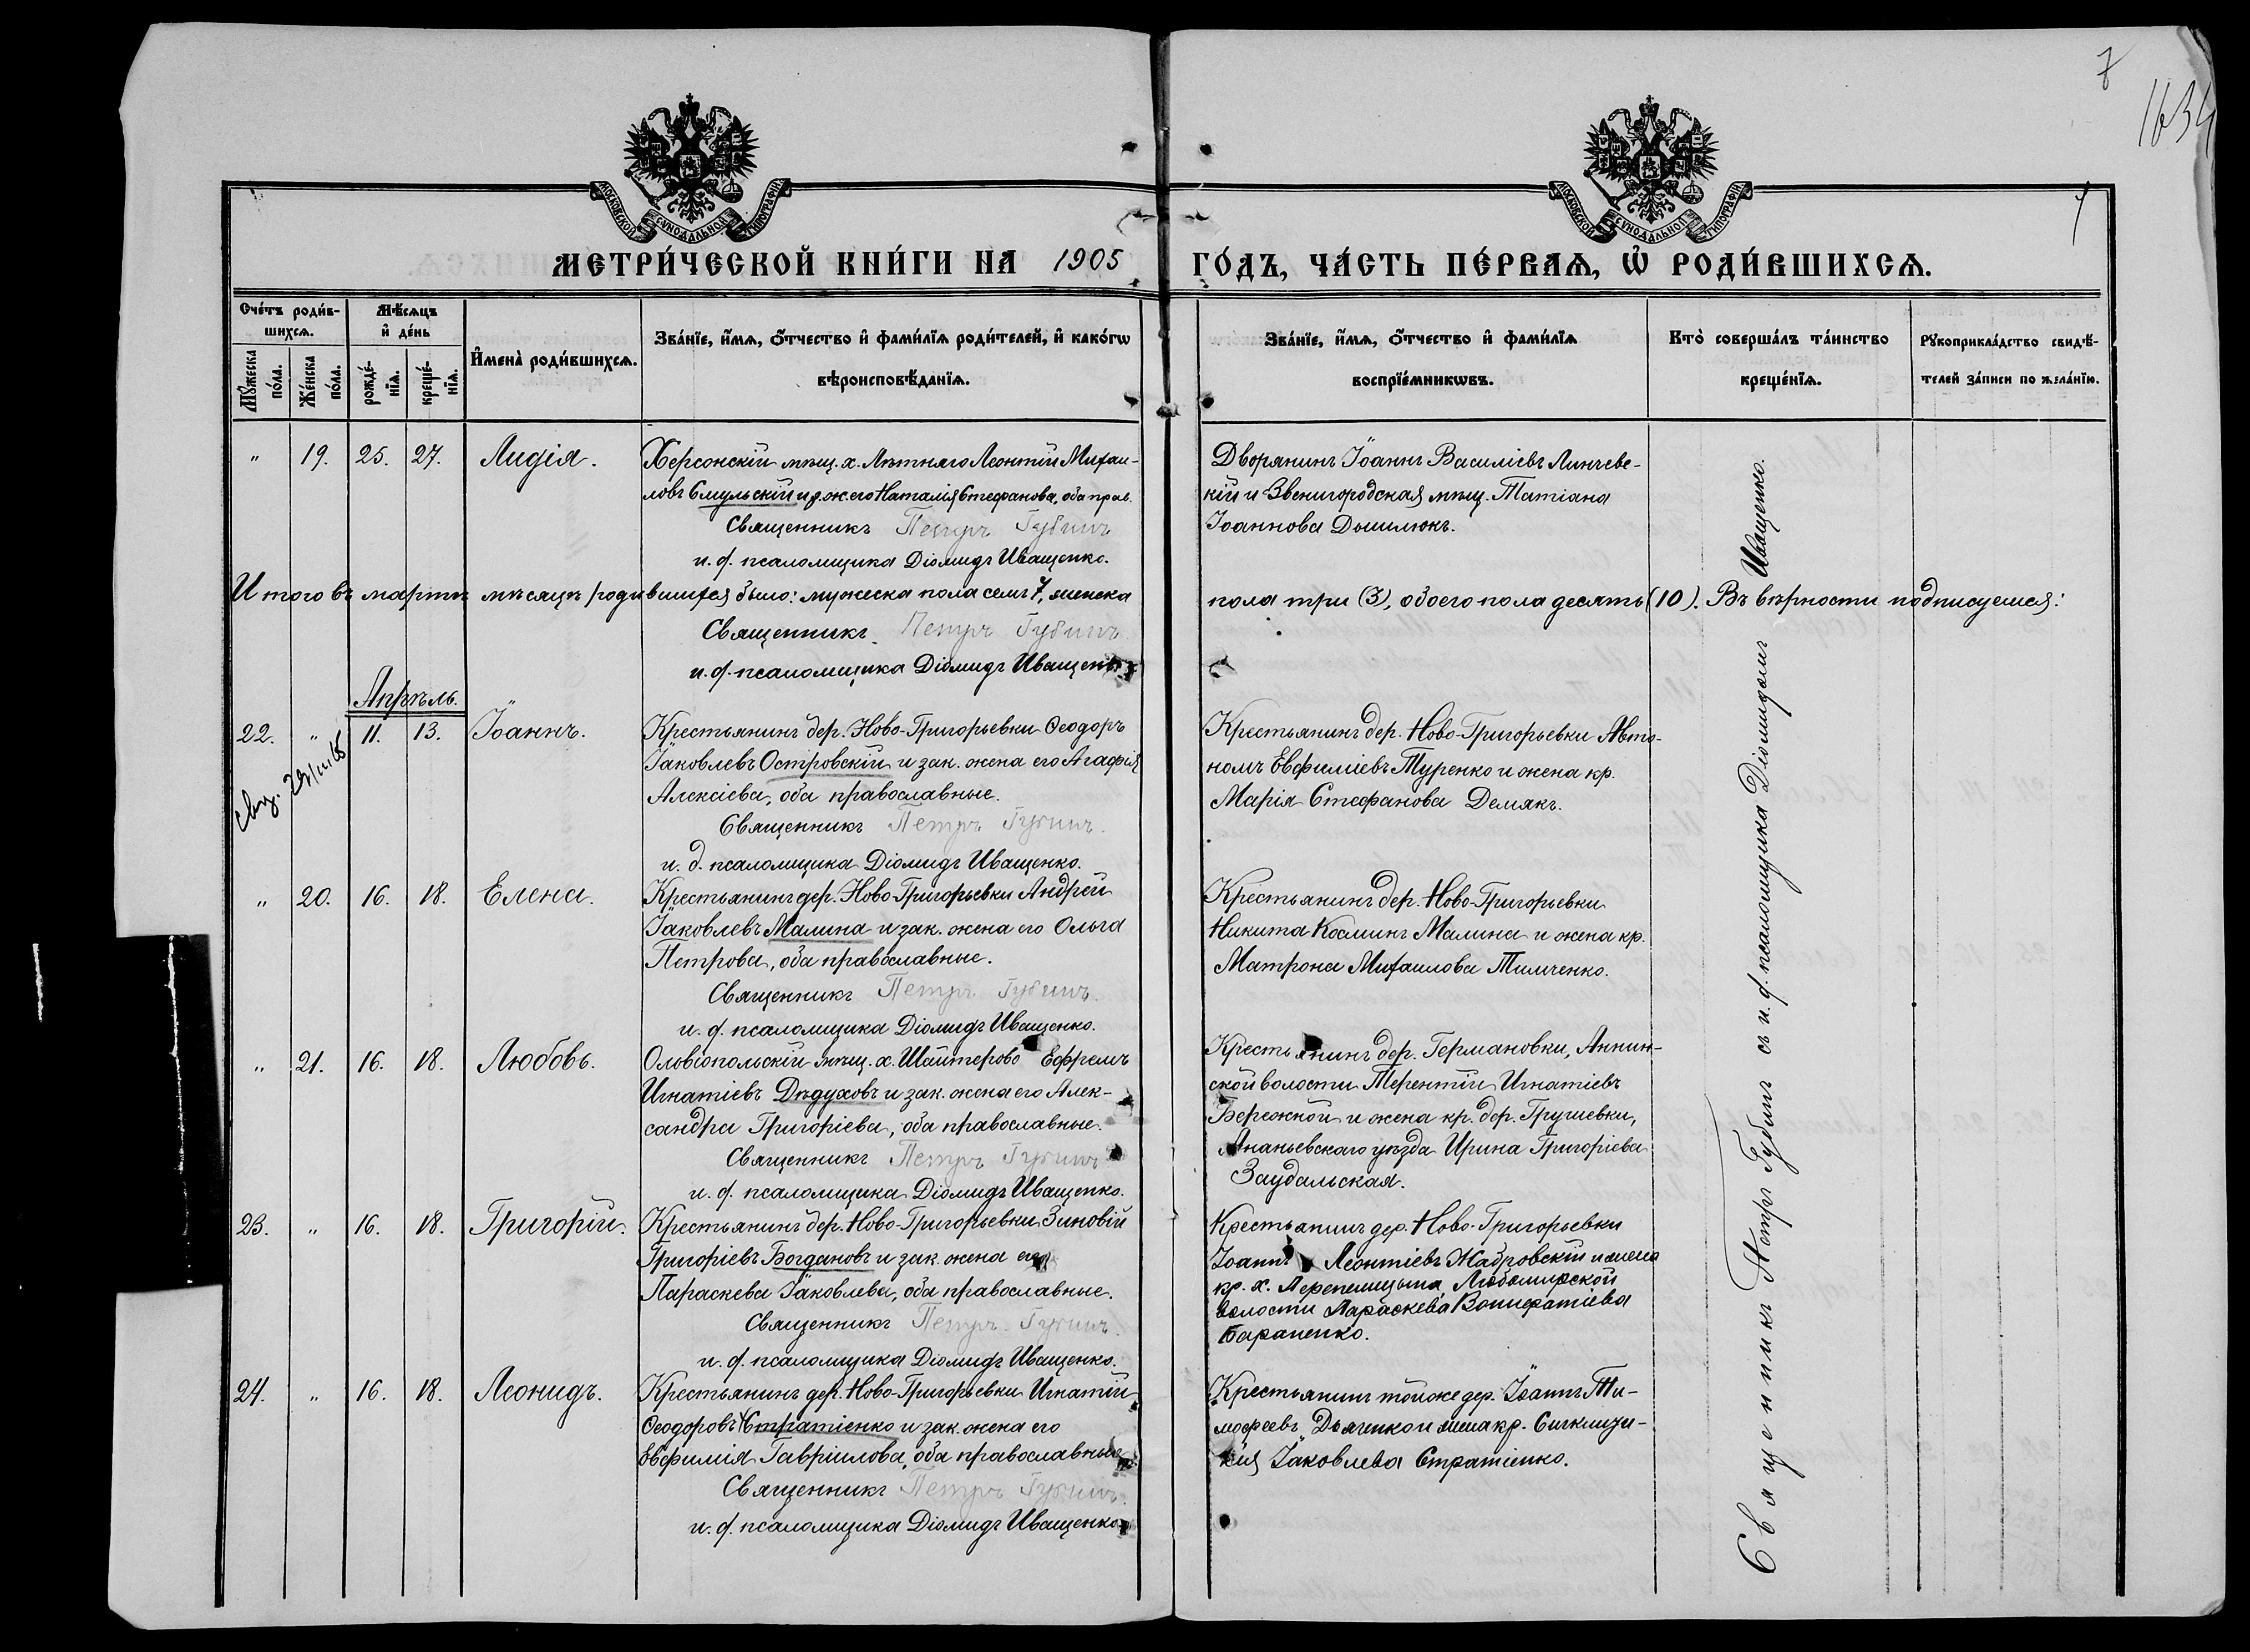 7
1634
7
МОСКОВСКОЙ СѴНОДАЛЬНОЙ ТИПОГРАФІИ
МОСКОВСКОЙ СѴНОДАЛЬНОЙ ТИПОГРАФІИ
МЕТРИ́ЧЕСКОЙ КНИ́ГИ НА 1905 ГО́ДЪ, ЧА́СТЬ ПЕ́РВАѦ, Ѡ҆ РОДИ́ВШИХСѦ.
Сче́тъ роди́в-
шихсѧ.
Мꙋ́жеска по́ла.
Же́нска по́ла.
Мѣ́сѧцъ
и҆ де́нь
рожде́-
нїѧ.
креще́-
нїѧ.
И҆мена̀ роди́вшихсѧ.
Зва́нїе, и҆́мѧ, ѻ҆́тчество и҆ фами́лїѧ роди́телей, и҆ како́гѡ
вѣроисповѣ́данїѧ.
Зва́нїе, и҆́мѧ, ѻ҆́тчество и҆ фами́лїѧ
воспрїе́мникѡвъ.
Кто̀ соверша́лъ та́инство
креще́нїѧ.
Рꙋкоприкла́дство свидѣ́-
телей за́писи по жела́нїю.
" 19. 25. 27. Лидія.
Херсонскій мѣщ. х. Лѣтняго Леонтій Михаи-
ловъ Смульскій и з. ж. его Наталія Стефанова, оба прав.
Священникъ Петръ Губинъ
и. д. псаломщика Діомидъ Иващенко.
Дворянинъ Іоаннъ Василіевъ Линчев-
кій и Звенигородская мѣщ. Татіана
Іоаннова Дышлюкъ.
Итого въ мартѣ мѣсяцѣ родившихся было: мужеска пола семь 7, женска пола три (3), обоего пола десять (10). Въ вѣрности подписуемся:
Священникъ Петръ Губинъ
и. д. псаломщика Діомидъ Иващенко
Апрѣль.
22. " 11. 13. Іоаннъ.
Крестьянинъ дер. Ново-Григорьевки Ѳеодоръ
Іаковлевъ Островскій и зак. жена его Агафія
Алексіева, оба православные.
Священникъ Петръ Губинъ.
и. д. псаломщика Діомидъ Иващенко.
Крестьянинъ дер. Ново-Григорьевки Авто-
номъ Евфиміевъ Туренко и жена кр.
Марія Стефанова Демякъ.
" 20. 16. 18. Елена.
Крестьянинъ дер. Ново-Григорьевки Андрей
Іаковлевъ Малина и зак. жена его Ольга
Петрова, оба православные.
Священникъ Петръ Губинъ.
и. д. псаломщика Діомидъ Иващенко.
Крестьянинъ дер. Ново-Григорьевки
Никита Косминъ Малина и жена кр.
Матрона Михаилова Тимченко.
" 21. 16. 18. Любовь.
Оловіопольскій мѣщ. х. Шайтерово Ефремъ
Игнатіевъ Дѣдуховъ и зак. жена его Алек-
сандра Григоріева, оба православные.
Священникъ Петръ Губинъ
и. д. псаломщика Діомидъ Иващенко.
Крестьянинъ дер. Германовки, Аннин-
ской волости Терентій Игнатіевъ
Бережной и жена кр. дер. Грушевки,
Ананьевскаго уѣзда Ирина Григоріева
Заудальская.
23. " 16. 18. Григорій.
Крестьянинъ дер. Ново-Григорьевки Зиновій
Григоріевъ Богдановъ и зак. жена его
Параскева Іаковлева, оба православные.
Священникъ Петръ Губинъ.
и. д. псаломщика Діомидъ Иващенко.
Крестьянинъ дер. Ново-Григорьевки
Іоаннъ Леонтіевъ Жабровскій и жена
кр. х. Перепелицына, Любомирской
волости Параскева Вонифатіева
Бараненко.
24. " 16. 18. Леонидъ.
Крестьянинъ дер. Ново-Григорьевки Игнатій
Ѳеодоровъ Стратіенко и зак. жена его
Евфимія Гавріилова, оба православные
Священникъ Петръ Губинъ.
и. д. псаломщика Діомидъ Иващенко
Крестьянинъ тойже дер. Іоаннъ Ти-
мофеевъ Дьяченко и жена кр. Сигклити-
кія Іаковлева Стратіенко.
Священникъ Петръ Губинъ съ и. д. псаломщика Діомидомъ Иващенко.